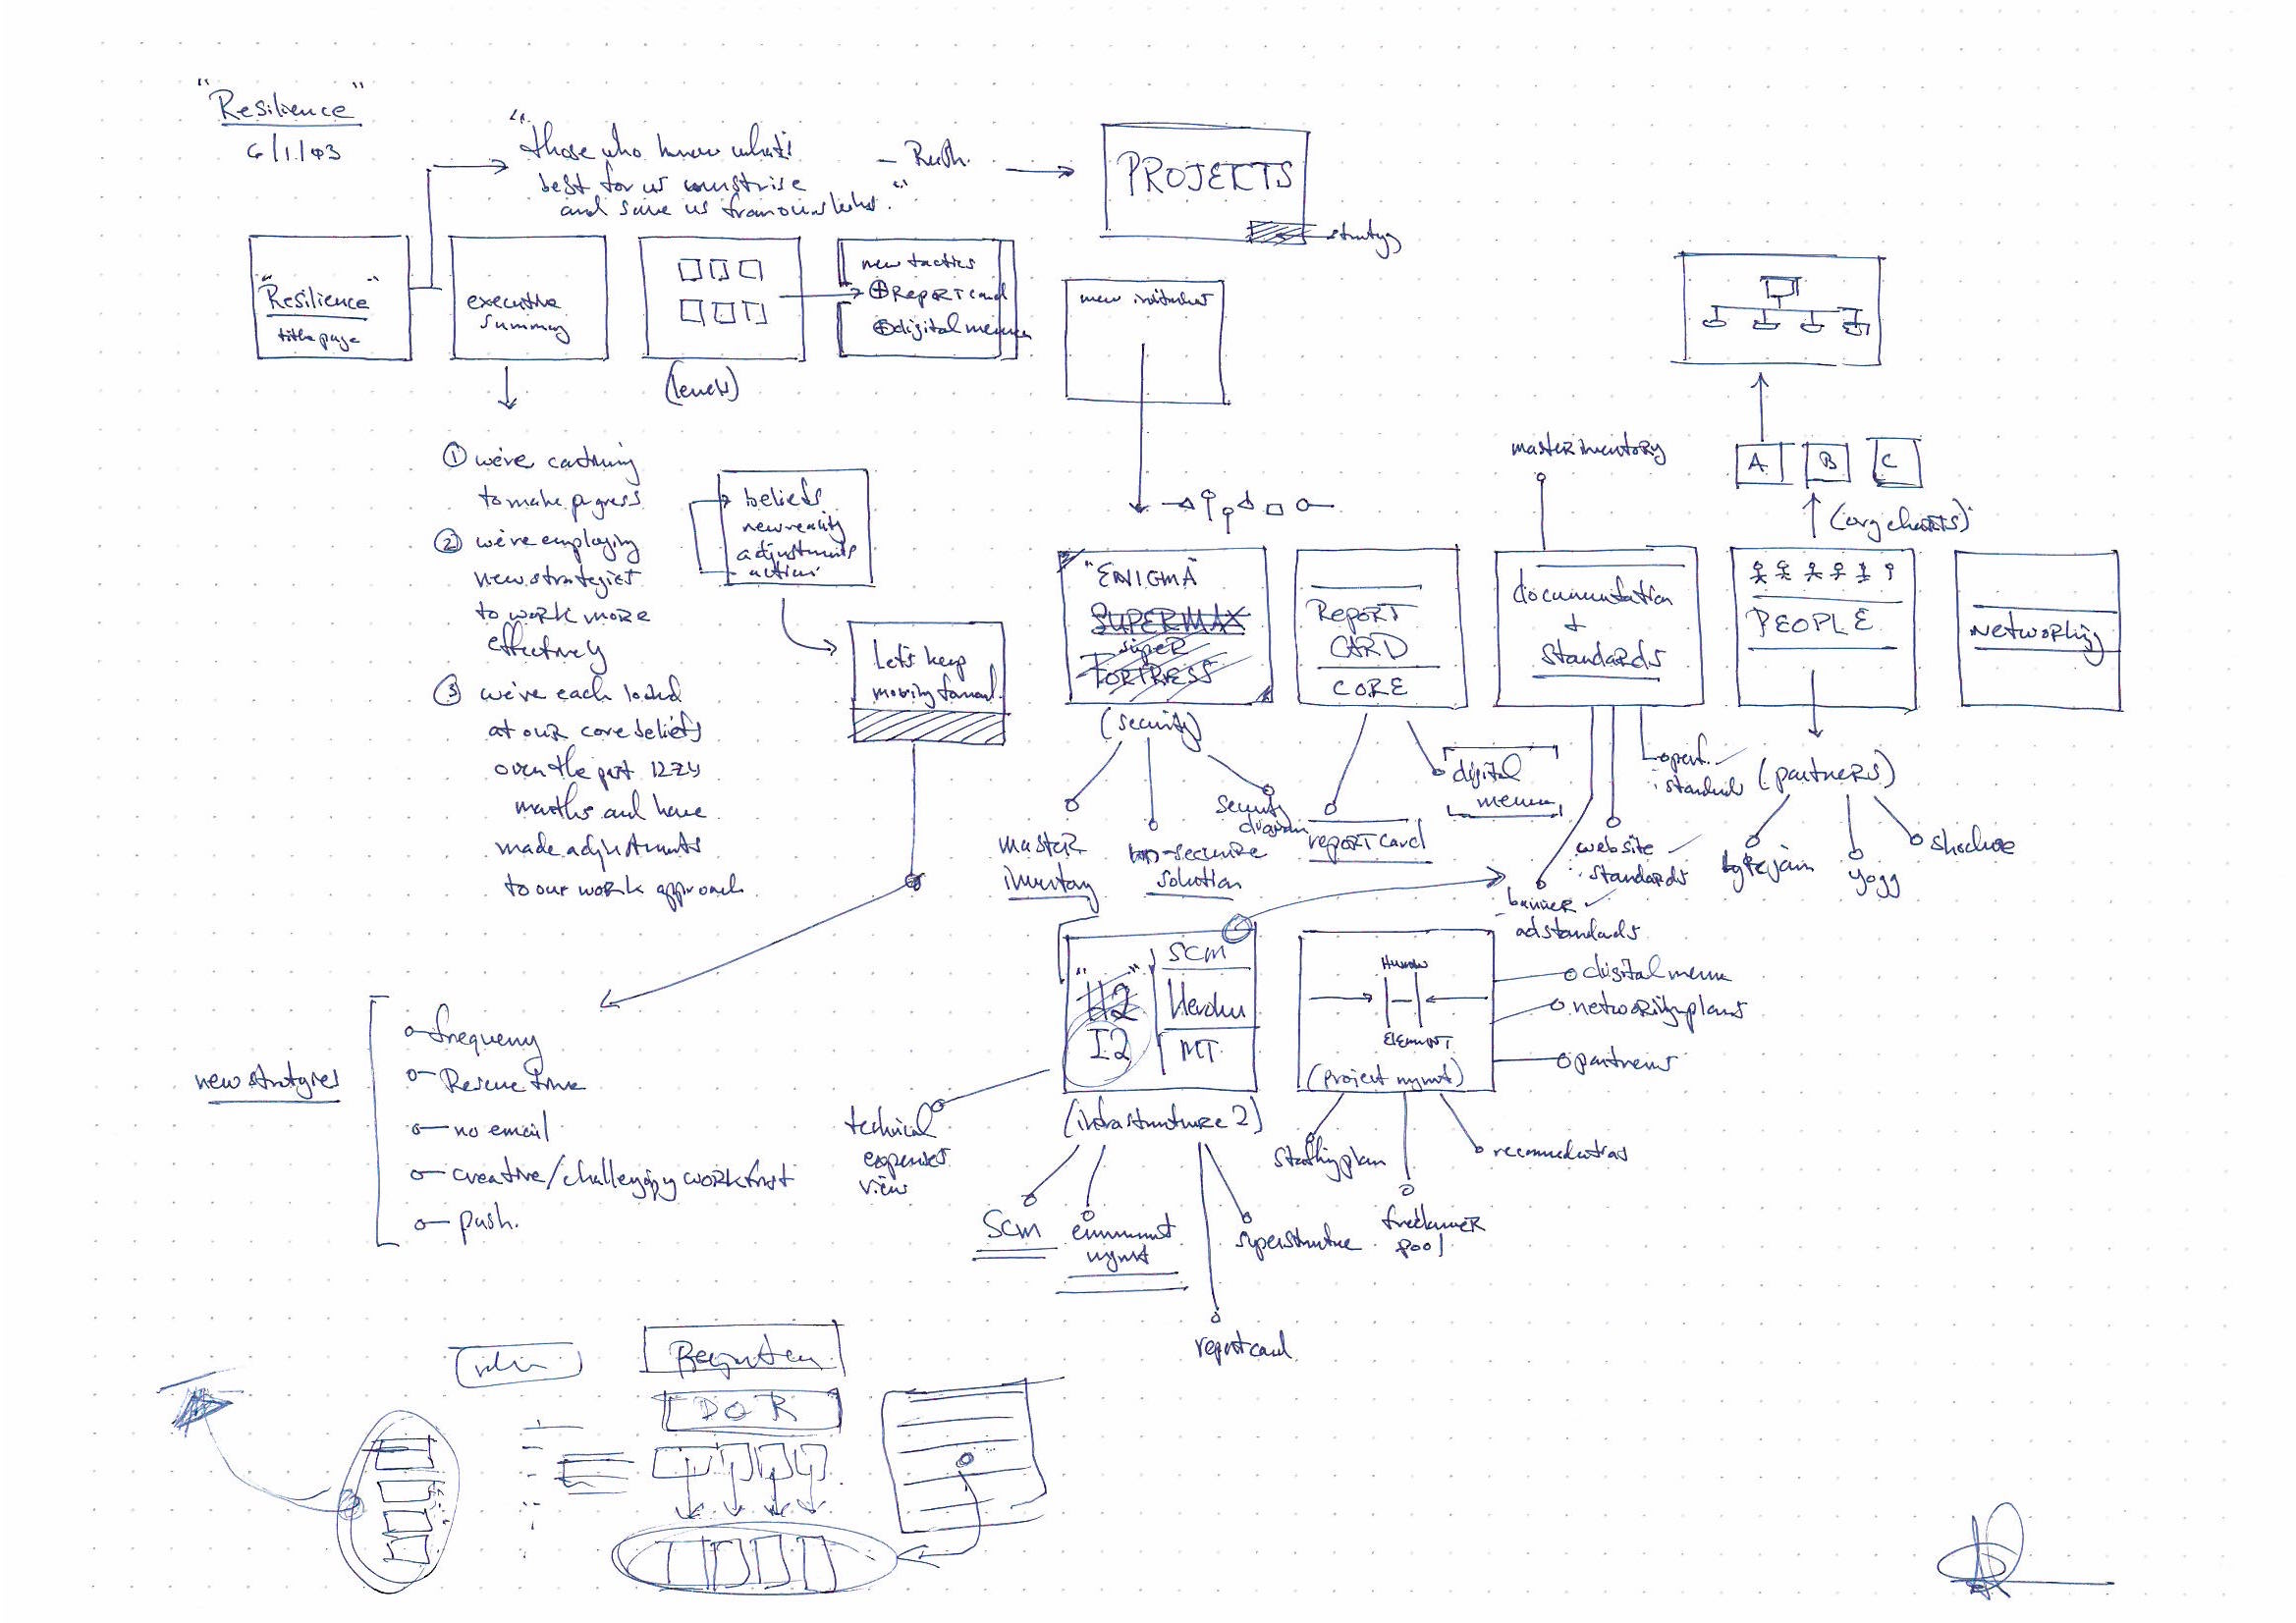 "Resilience"
6/1/03
"those who know what's
best for us must rise
and save us from ourselves."
— Rush.
PROJECTS
strategy
"Resilience"
title page
executive
summary
(levels)
new tactics
Report card
digital menu
new initiatives
① we're continuing
to make progress
② we're employing
new strategies
to work more
effectively
③ we've each looked
at our core beliefs
over the past 12-24
months and have
made adjustments
to our work approach.
beliefs
new reality
adjustments
actions
Let's keep
moving forward.
new strategies
frequency
Rescue time
no email
creative/challenging work first
push.
"ENIGMA
SUPERMAX
SUPER
FORTRESS
(security)
master
inventory
non-secure
solution
security
diagram
REPORT
CARD
CORE
report card
digital
menu
master inventory
documentation
+
standards
banner
ad standards
website
standards
standards
A
B
C
(org charts)
PEOPLE
(partners)
bytejam
yogg
shockoe
Networking
"H2"
I2
SCM
Heroku
MT
(infrastructure 2)
technical
expenses
view
SCM
environment
mgmt
superstructure
report card
Human
ELEMENT
(project mgmt)
digital menu
networking plans
partners
staffing plan
freelancer
pool
recommendations
DOR